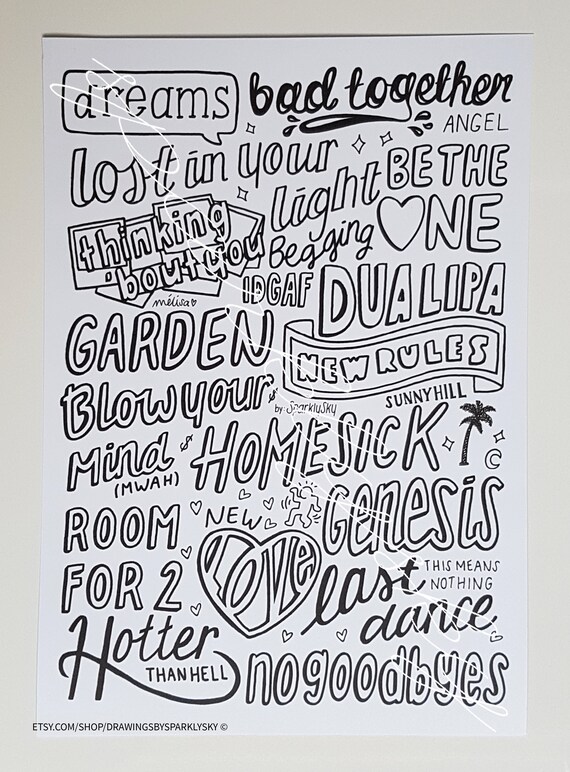 dreams
bad together
ANGEL
lost in your
light
BE THE
♡NE
thinking
'bout you
Begging
mélisa♡
IDGAF
DUA LIPA
GARDEN
NEW RULES
SUNNYHILL
Blow your
by: SparklySky
Mind
(MWAH)
HOMESICK
C
ROOM
FOR 2
NEW
LOVE
GENESIS
last
dance
THIS MEANS
NOTHING
Hotter
THAN HELL
no goodbyes
ETSY.COM/SHOP/DRAWINGSBYSPARKLYSKY ©